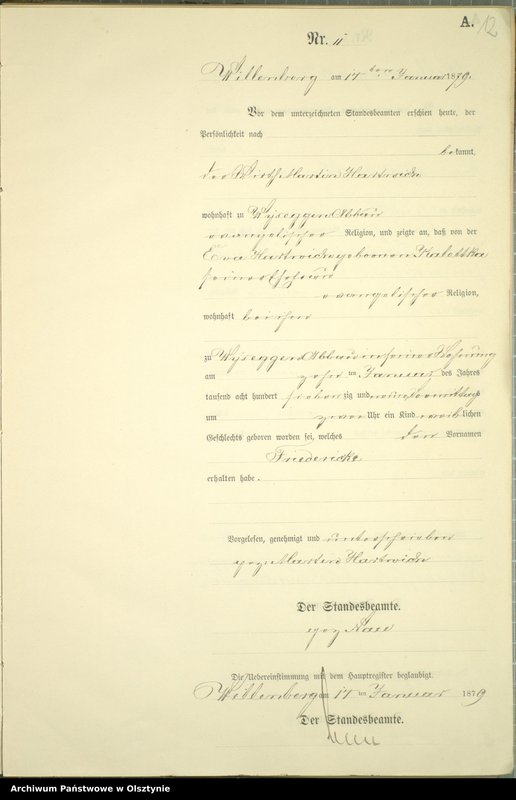 A.
12
Nr. 11
Willenberg am 14 ten Januar 1879.
Vor dem unterzeichneten Standesbeamten erschien heute, der
Persönlichkeit nach
bekannt,
der Wirth Martin
wohnhaft zu Abbau
evangelischer Religion, und zeigte an, daß von der
Eva geborenen
seiner Ehefrau
evangelischer Religion,
wohnhaft bei ihm
zu Abbau in seiner Wohnung
am zehn ten Januar des Jahres
tausend acht hundert sieben zig und neun Vormittags
um zwei Uhr ein Kind weiblichen
Geschlechts geboren worden sei, welches den Vornamen
Friedericke
erhalten habe.
Vorgelesen, genehmigt und unterschrieben
gez. Martin
Der Standesbeamte.
gez.
Die Uebereinstimmung mit dem Hauptregister beglaubigt.
Willenberg am 14 ten Januar 1879
Der Standesbeamte.
Archiwum Państwowe w Olsztynie